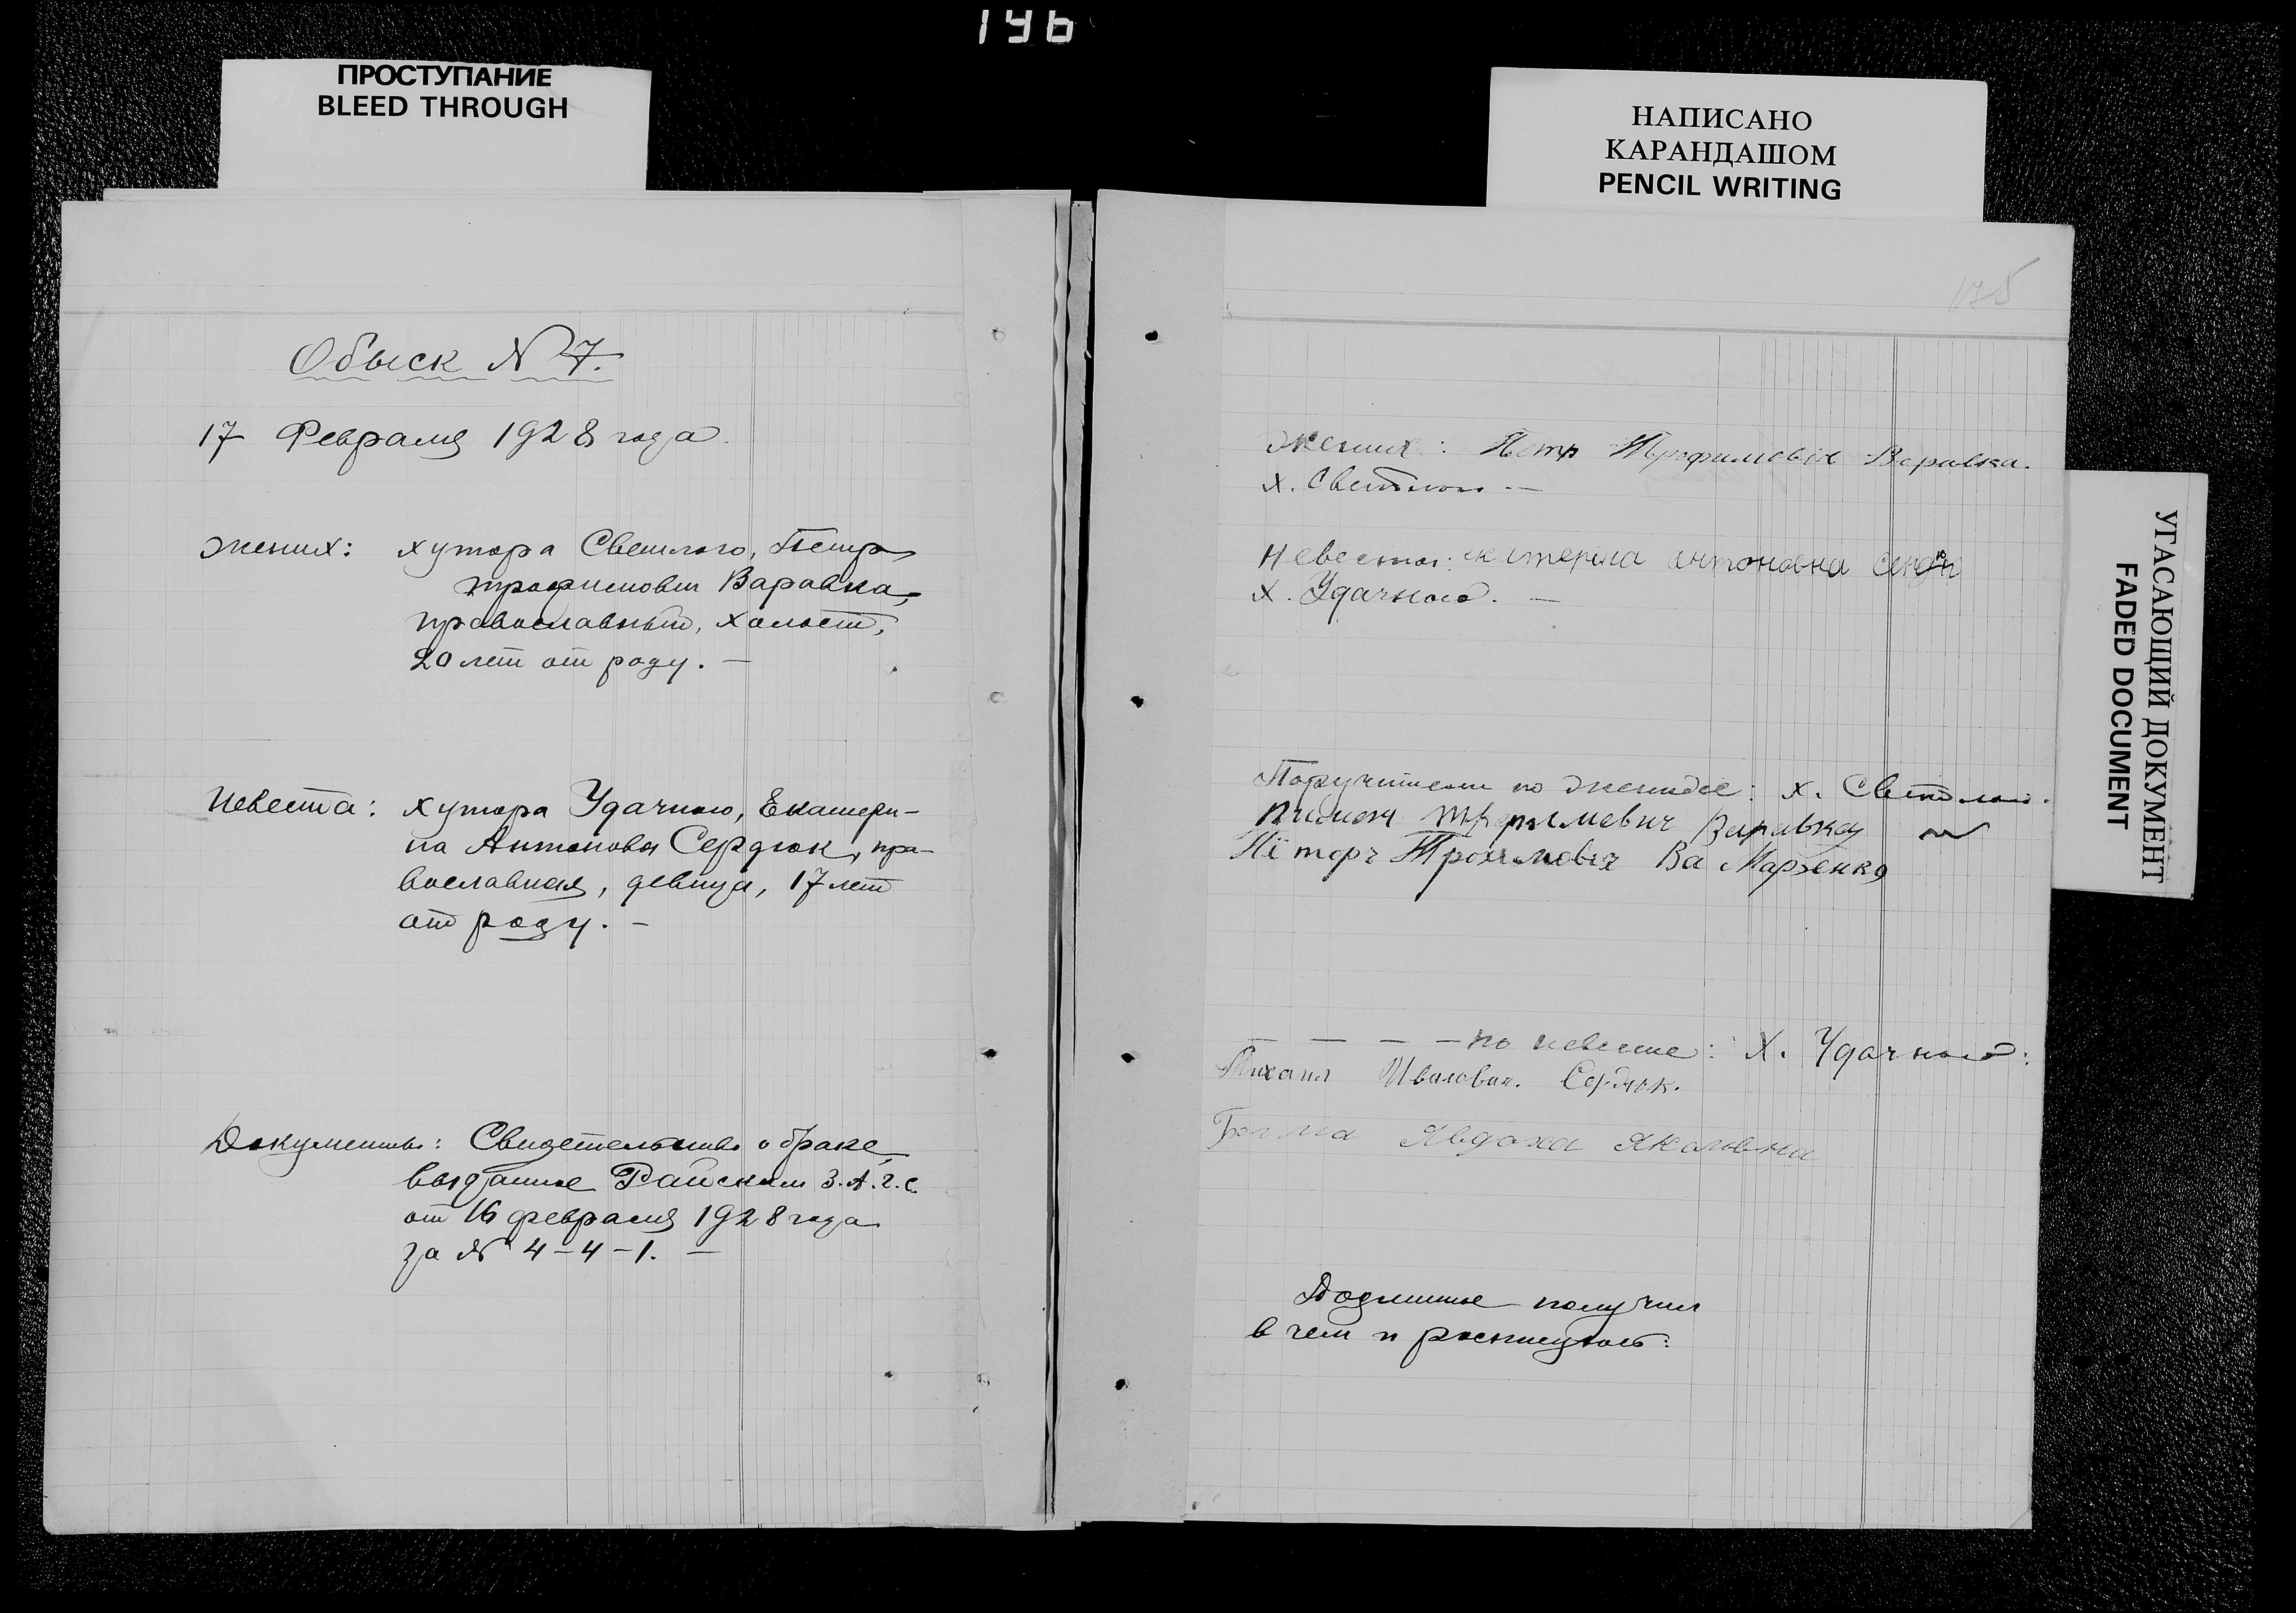 196
ПРОСТУПАНИЕ
BLEED THROUGH
НАПИСАНО
КАРАНДАШОМ
PENCIL WRITING
УГАСАЮЩИЙ ДОКУМЕНТ
FADED DOCUMENT
Обыск № 7.
17 Февраля 1928 года
Жених: хутора Светлого, Петр
Трофимович Варавка,
православный, холост,
20 лет от роду. —
Невеста: хутора Удачного, Екатери-
на Антонова Сердюк, пра-
вославная, девица, 17 лет
от роду. —
Документы: Свидетельство о браке,
выданное Райским З.А.Г.С.
от 16 февраля 1928 года
за № 4-4-1. —
175
Жених: Петр Трофимовіч Варавка.
х. Светлого —
Невеста: антоновна
х. Удачного. —
Поручители по женихе: х. Светлого.
Варавка
Трохимовіч
— — — — по невесте: х. Удачного:
Михаил Иванович. Сердюк.
Явдоха Якововна
Подлинные получил
в чем и росписуюсь: